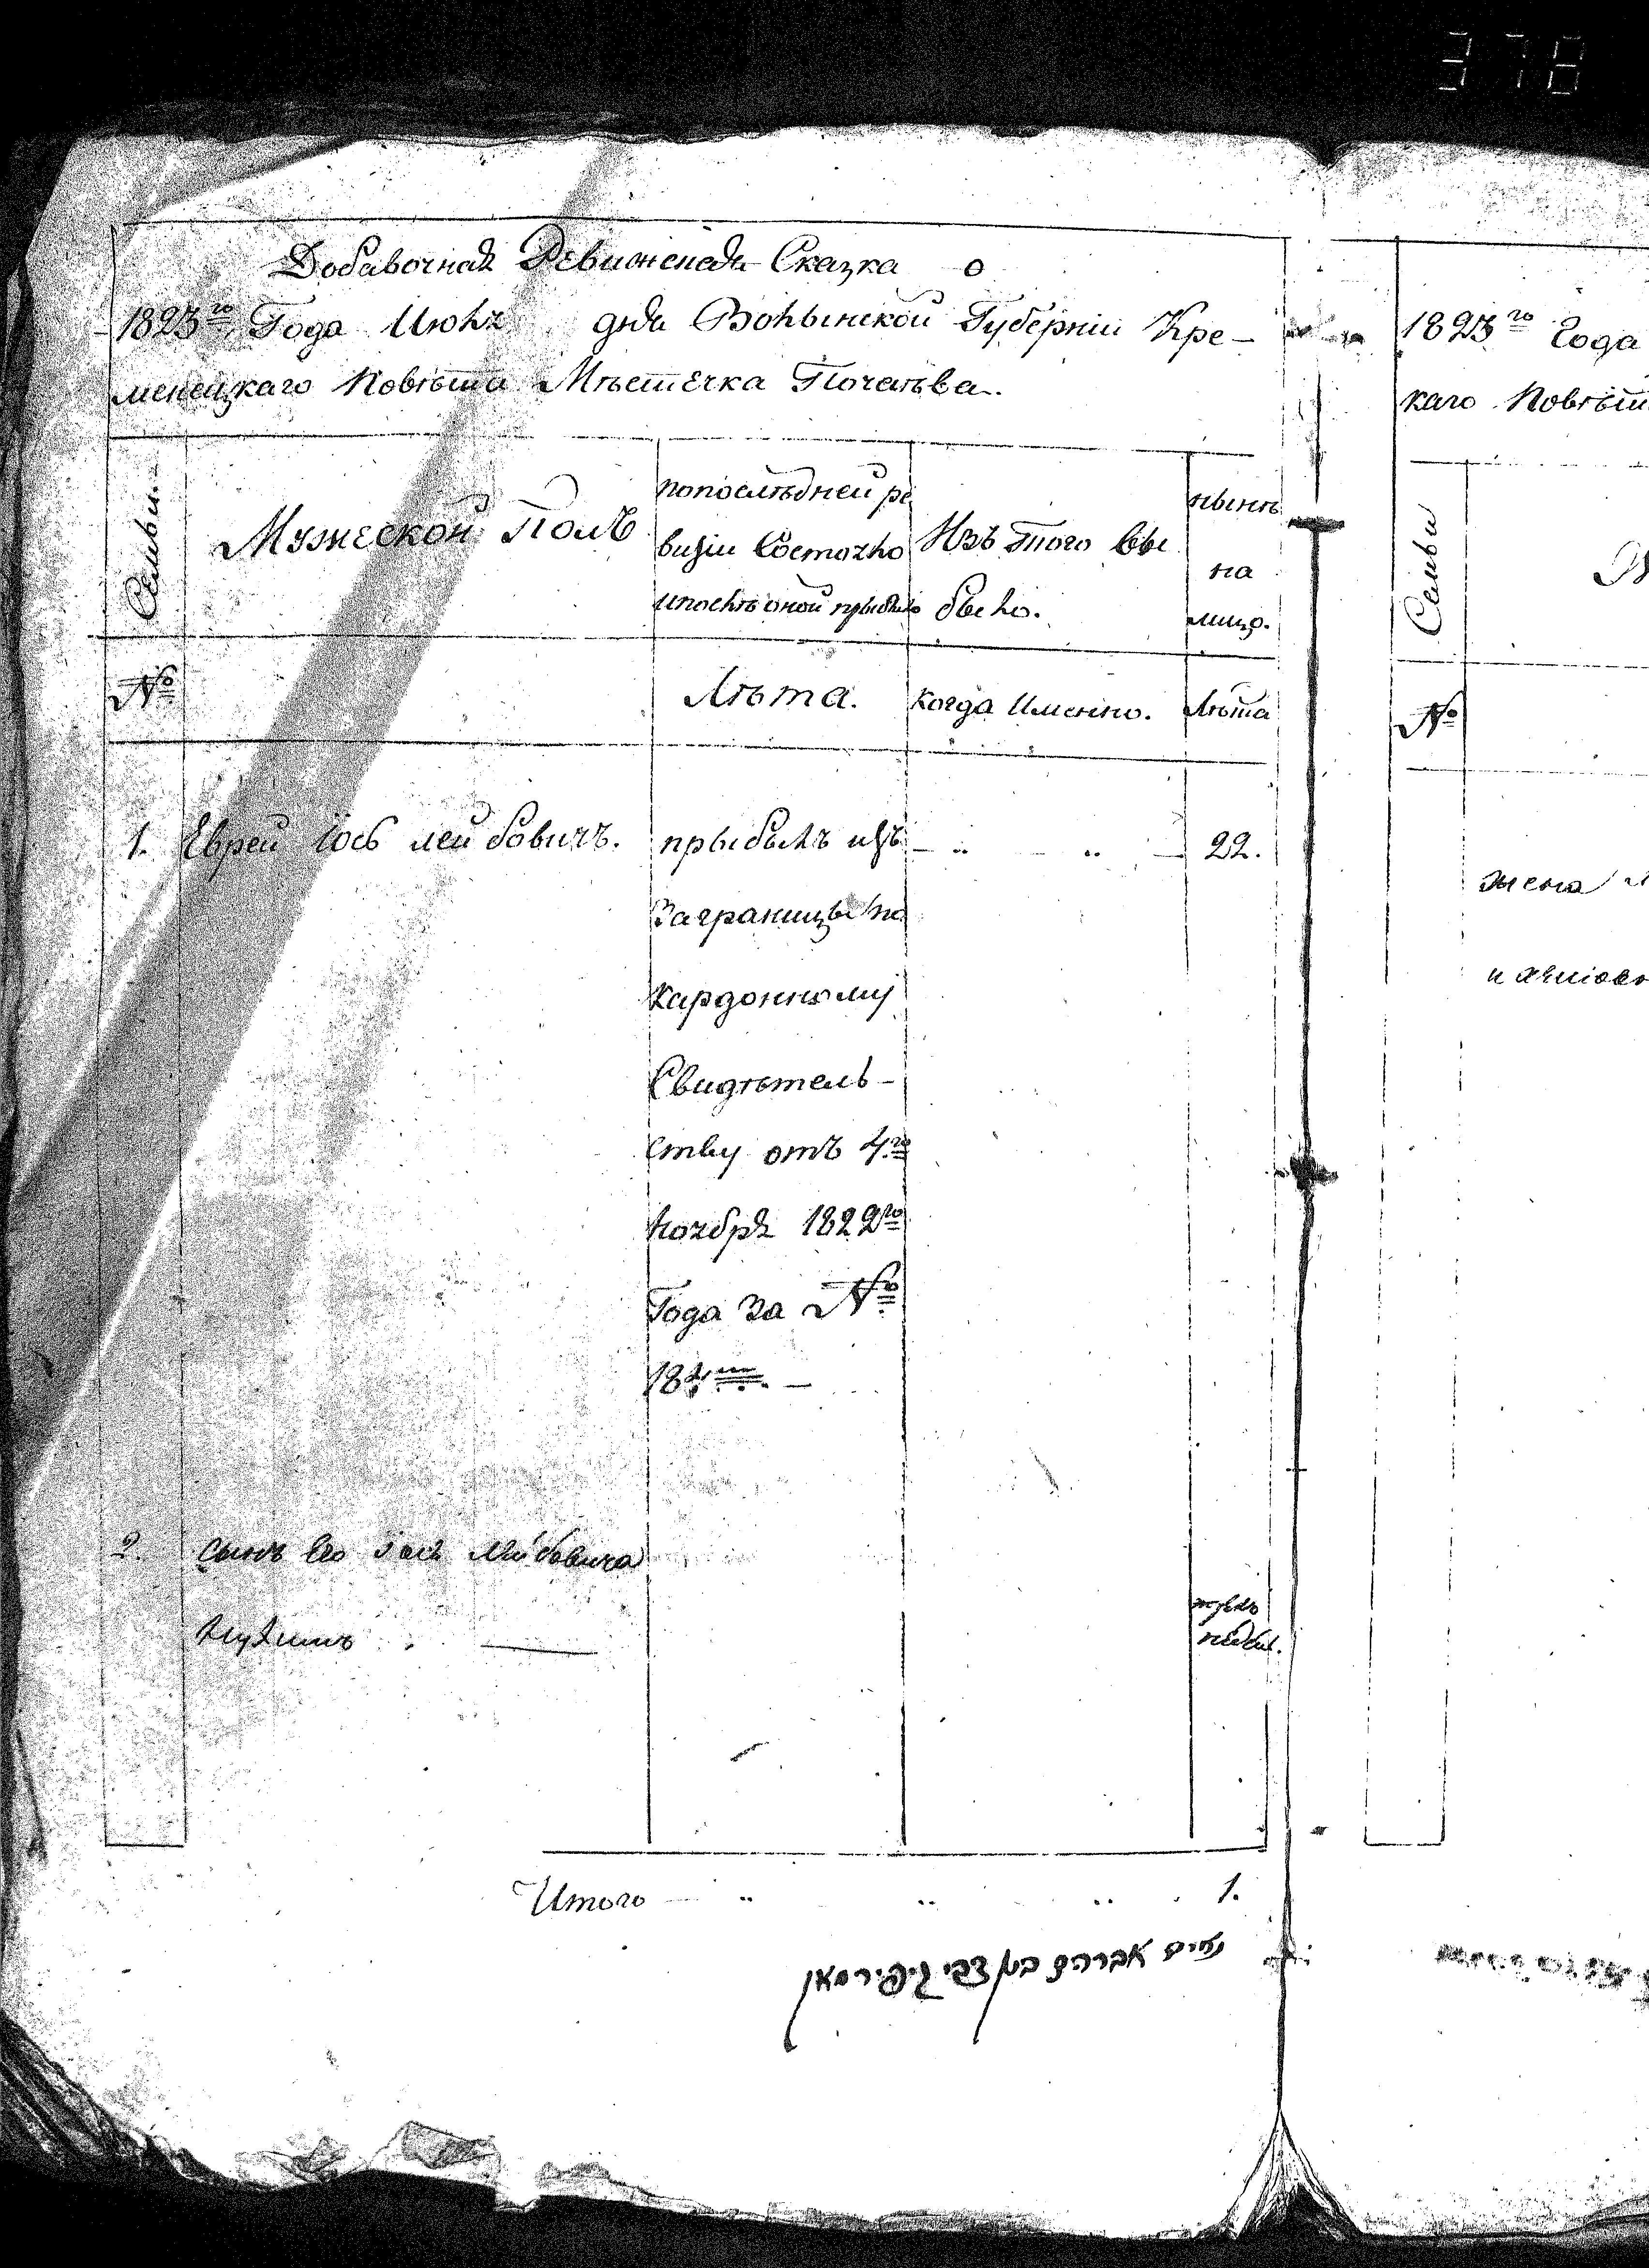 378
Добавочная Ревижская Сказка
1823го Года Июня дня Волынской Губерніи Кре-
менецкаго Повѣта Мѣстечка Почаева.
Семьи.
Мужеской Полъ
попослѣдней ре
визіи Состояло
ипослѣ оной прыбыло
Изъ того вы
было.
нынѣ
на
лицо.
№
Лѣта.
когда Именно.
Лѣта
1. Еврей Іось лейбовичъ.
прыбылъ изъ
Заграницы по
Кардонному
Свидѣтель-
ству отъ 4го
ноября 1822го
Года за №
22.
2. сынъ его Іось Лейбовича
Итого 1.
אברהם בן צבי
1823го Года
каго Повѣта
Семьи
№
жена